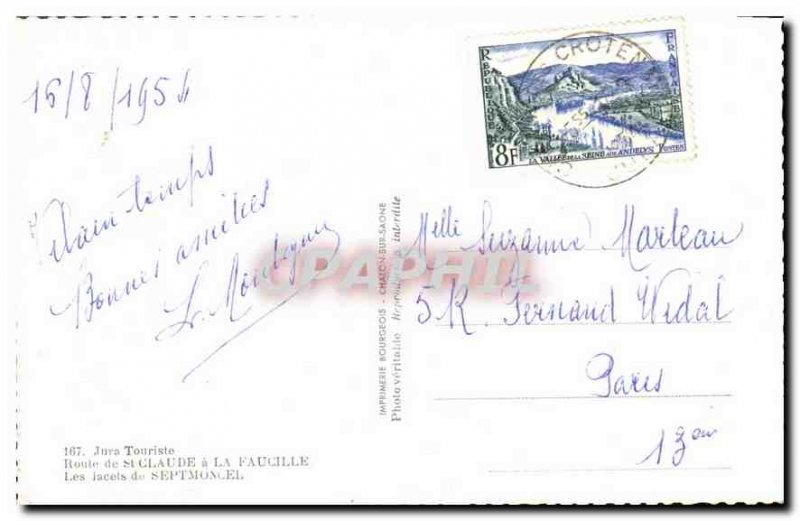 16/8/1954
Vilain temps
Bonnes amitiés
L. Montagne
167. Jura Touriste
Route de St CLAUDE à LA FAUCILLE
Les lacets de SEPTMONCEL
IMPRIMERIE BOURGEOIS - CHALON-SUR-SAONE
Photo véritable Reproduction interdite
REPUBLIQUE
FRANÇAISE
8F
LA VALLÉE DE LA SEINE AUX ANDELYS POSTES
CROTEN
CPAPHIL
Melle Suzanne Marleau
5 R. Fernand Widal
Paris
13em